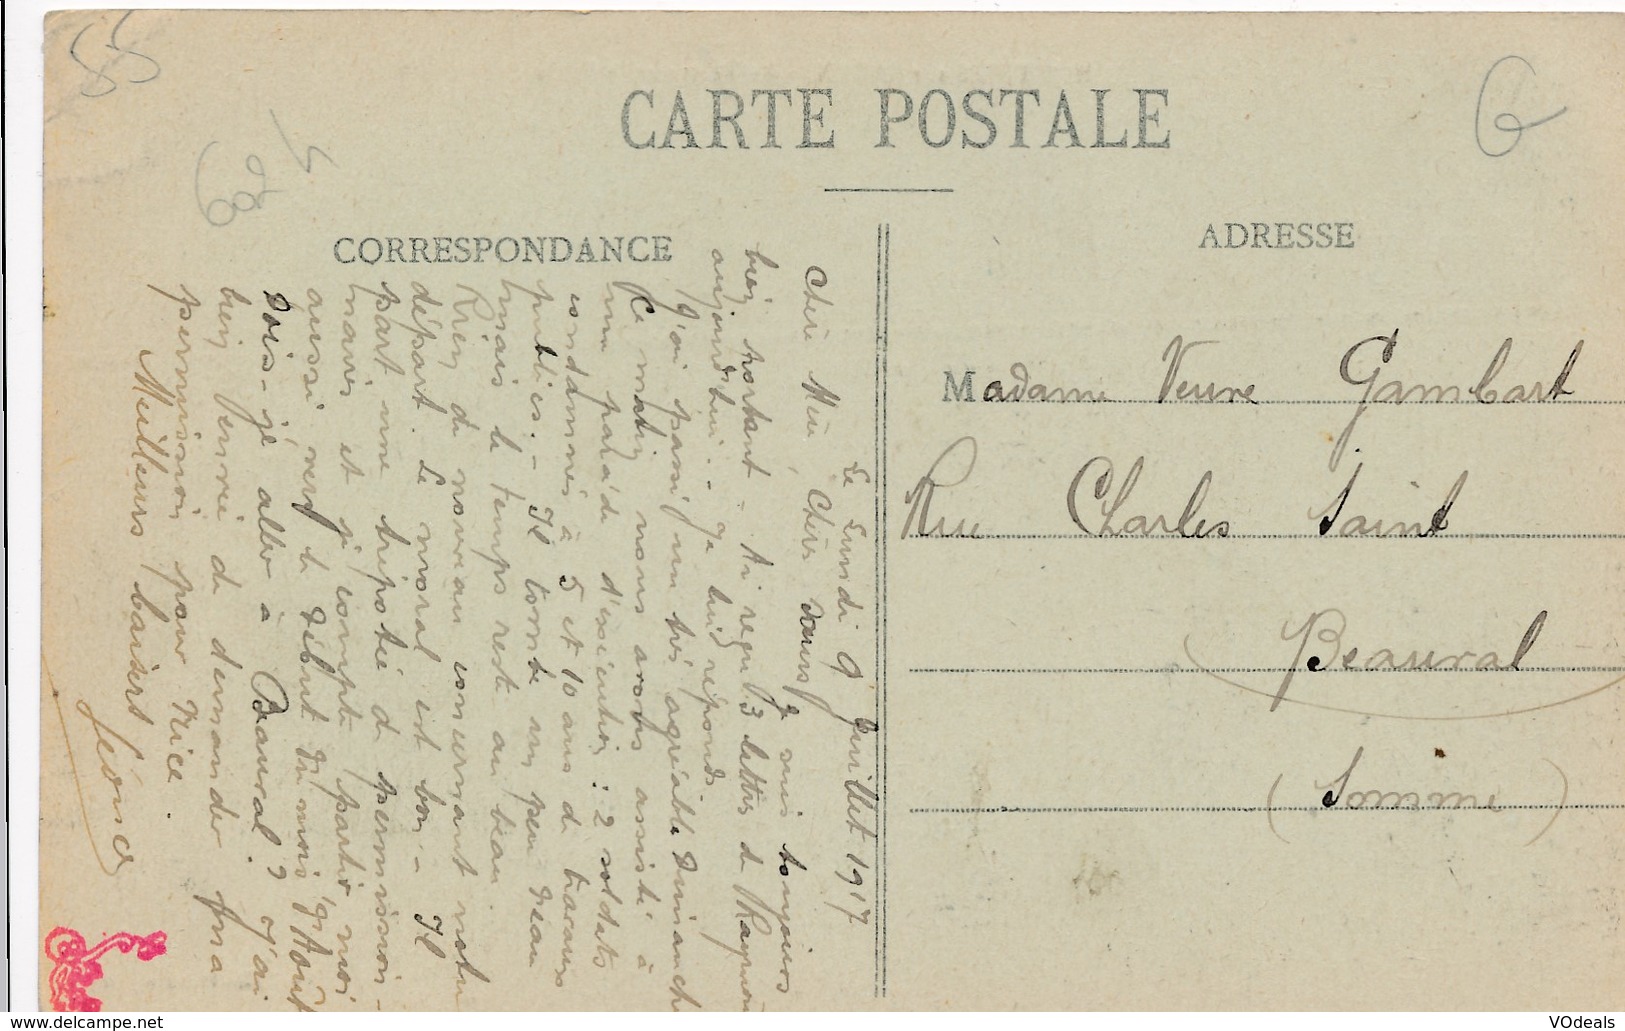 CARTE POSTALE
CORRESPONDANCE
ADRESSE
Le Lundi 9 Juillet 1917
Chère Mère, Chère soeur, Je suis toujours
bien portant - Ai reçu 3 lettres de Raymond
aujourd'hui. - Je lui réponds
J'ai passé un très agréable Dimanche
Ce matin nous avons assisté à
une parade d'exécution : 2 soldats
condamnés à 5 et 10 ans de travaux
publics. - Il tombe un peu d'eau
mais le temps reste au beau.
Rien de nouveau concernant notre
départ. Le moral est bon - Il
part une tripotée de permission-
naires et je compte partir moi
aussi vers le début du mois d'Août
Dois-je aller à Beauval ? J'ai
bien envie de demander ma
permission pour Nice.
Meilleurs baisers
Léonce
Madame Veuve Gambart
Rue Charles Saint
Beauval
(Somme)
www.delcampe.net
VOdeals